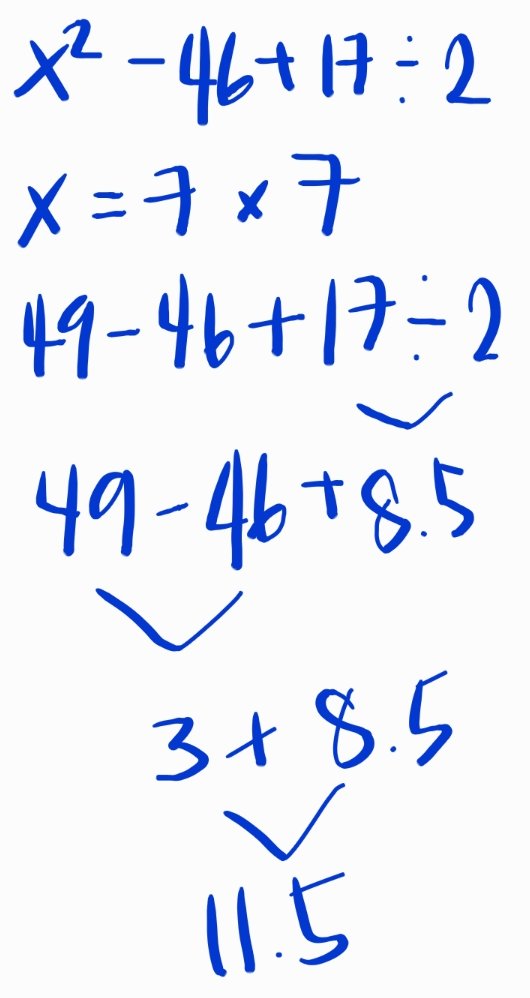 x² - 46 + 17 ÷ 2
x = 7 × 7
49 - 46 + 17 ÷ 2
49 - 46 + 8.5
3 + 8.5
11.5